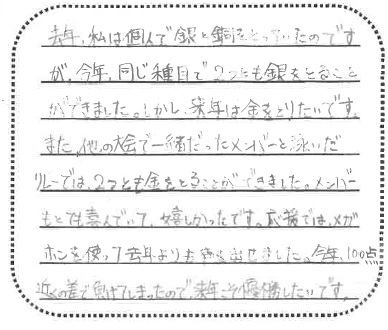 去年、私は個人で銀と銅をとっていたのです
が、今年、同じ種目で2つとも銀をとること
ができました。しかし、来年は金をとりたいです。
また、他の大会で一緒だったメンバーと泳いだ
リレーでは、2つとも金をとることができました。メンバー
もとても喜んでいて、嬉しかったです。応援では、メガ
ホンを使って去年より声を出せました。今年、100点
近くの差で負けてしまったので、来年こそ優勝したいです。